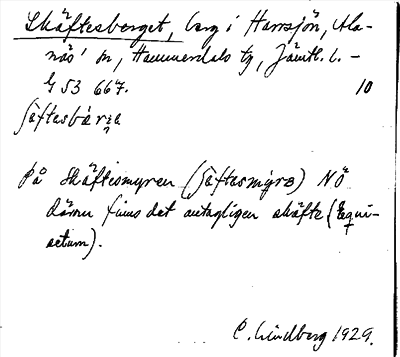 Skäftesberget, berg i Harrsjön, Ala-
näs' sn, Hammerdals tg, Jämtl. l. –
G 53 667. 10
ʃäftesbärɛ
På Skäftesmyren (ʃäftesmyra) NÖ
därom finns det antagligen skäfte (Equi-
setum).
C. Lindberg 1929.